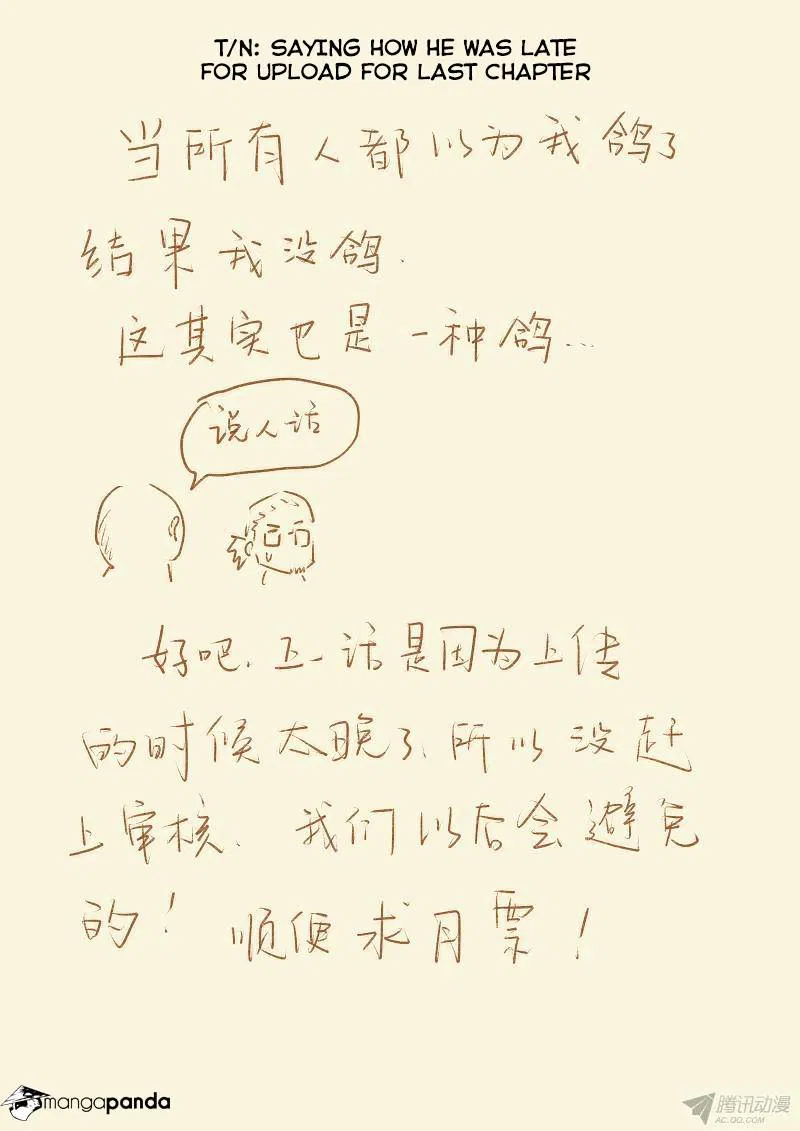 T/N: SAYING HOW HE WAS LATE
FOR UPLOAD FOR LAST CHAPTER
当所有人都以为我鸽了
结果我没鸽.
这其实也是一种鸽...
说人话
好吧.五一话是因为上传
的时候太晚了、所以没赶
上审核、我们以后会避免
的！顺便求月票！
mangapanda
腾讯动漫
AC.QQ.COM